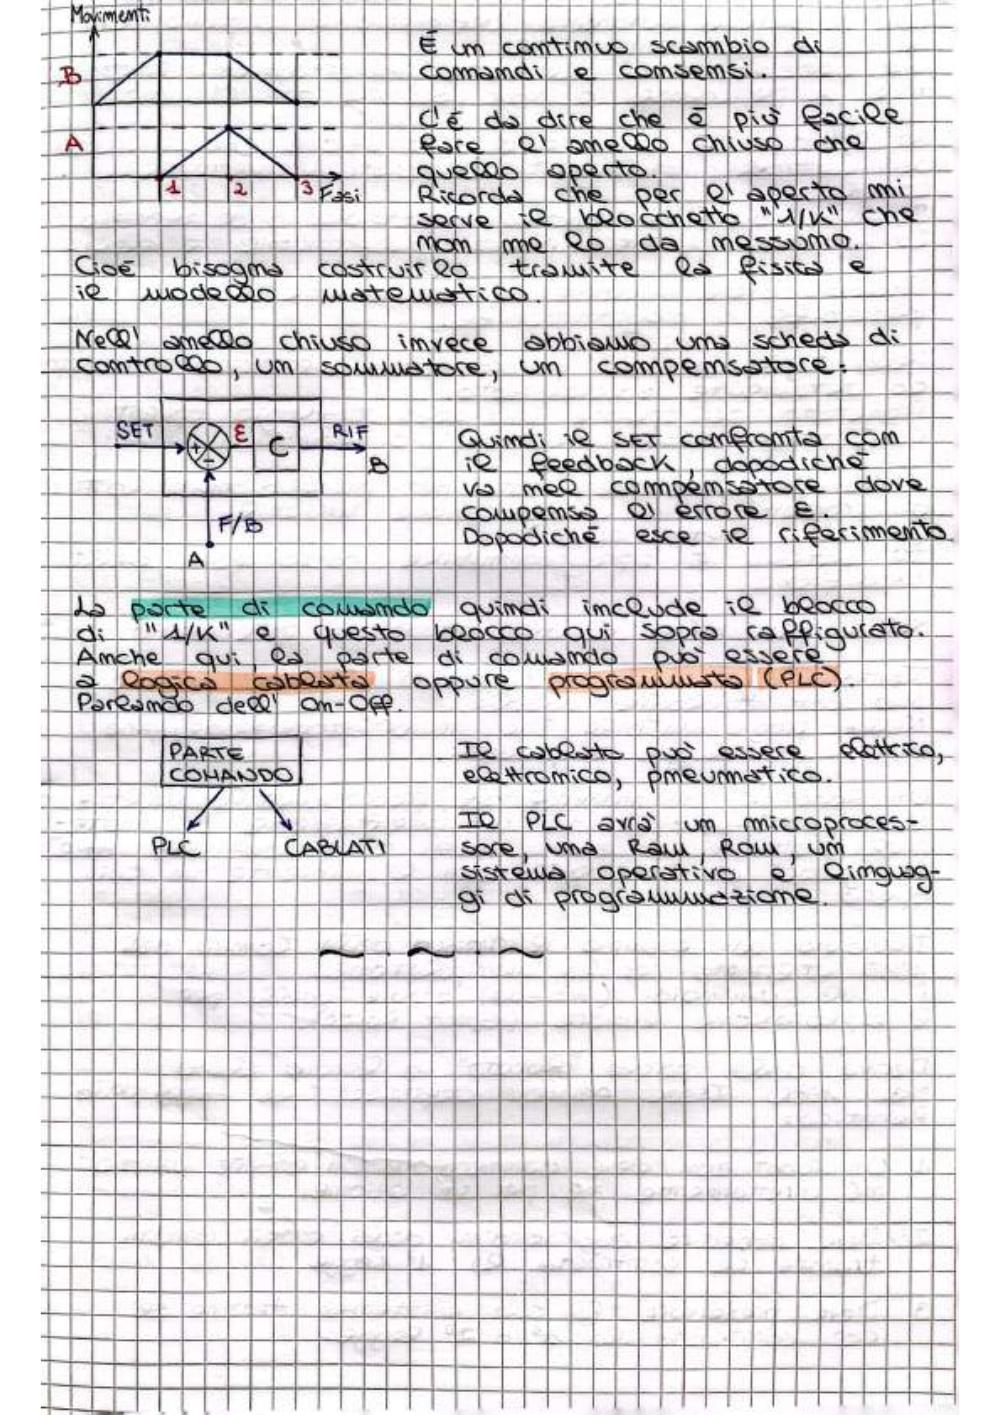 Movimenti
B
A
1 2 3 Fasi
È un continuo scambio di
comandi e consensi.
C'è da dire che è più facile
fare l'anello chiuso che
quello aperto.
Ricorda che per l'aperto mi
serve il blocchetto "1/K" che
non me lo da nessuno.
Cioè bisogna costruirlo tramite la fisica e
il modello matematico.
Nell'anello chiuso invece abbiamo una scheda di
controllo, un sommatore, un compensatore:
SET + - ε C RIF
B
F/B
A
Quindi il SET confronta con
il feedback, dopodiché
va nel compensatore dove
compensa l'errore ε.
Dopodiché esce il riferimento
La parte di comando quindi include il blocco
di "1/K" e questo blocco qui sopra raffigurato.
Anche qui, la parte di comando può essere
a logica cablata oppure programmata (PLC).
Parlando dell'On-Off.
PARTE
COMANDO
PLC CABLATI
Il cablato può essere elettrico,
elettronico, pneumatico.
Il PLC avrà un microproces-
sore, una Ram, Rom, un
sistema operativo e linguag-
gi di programmazione.